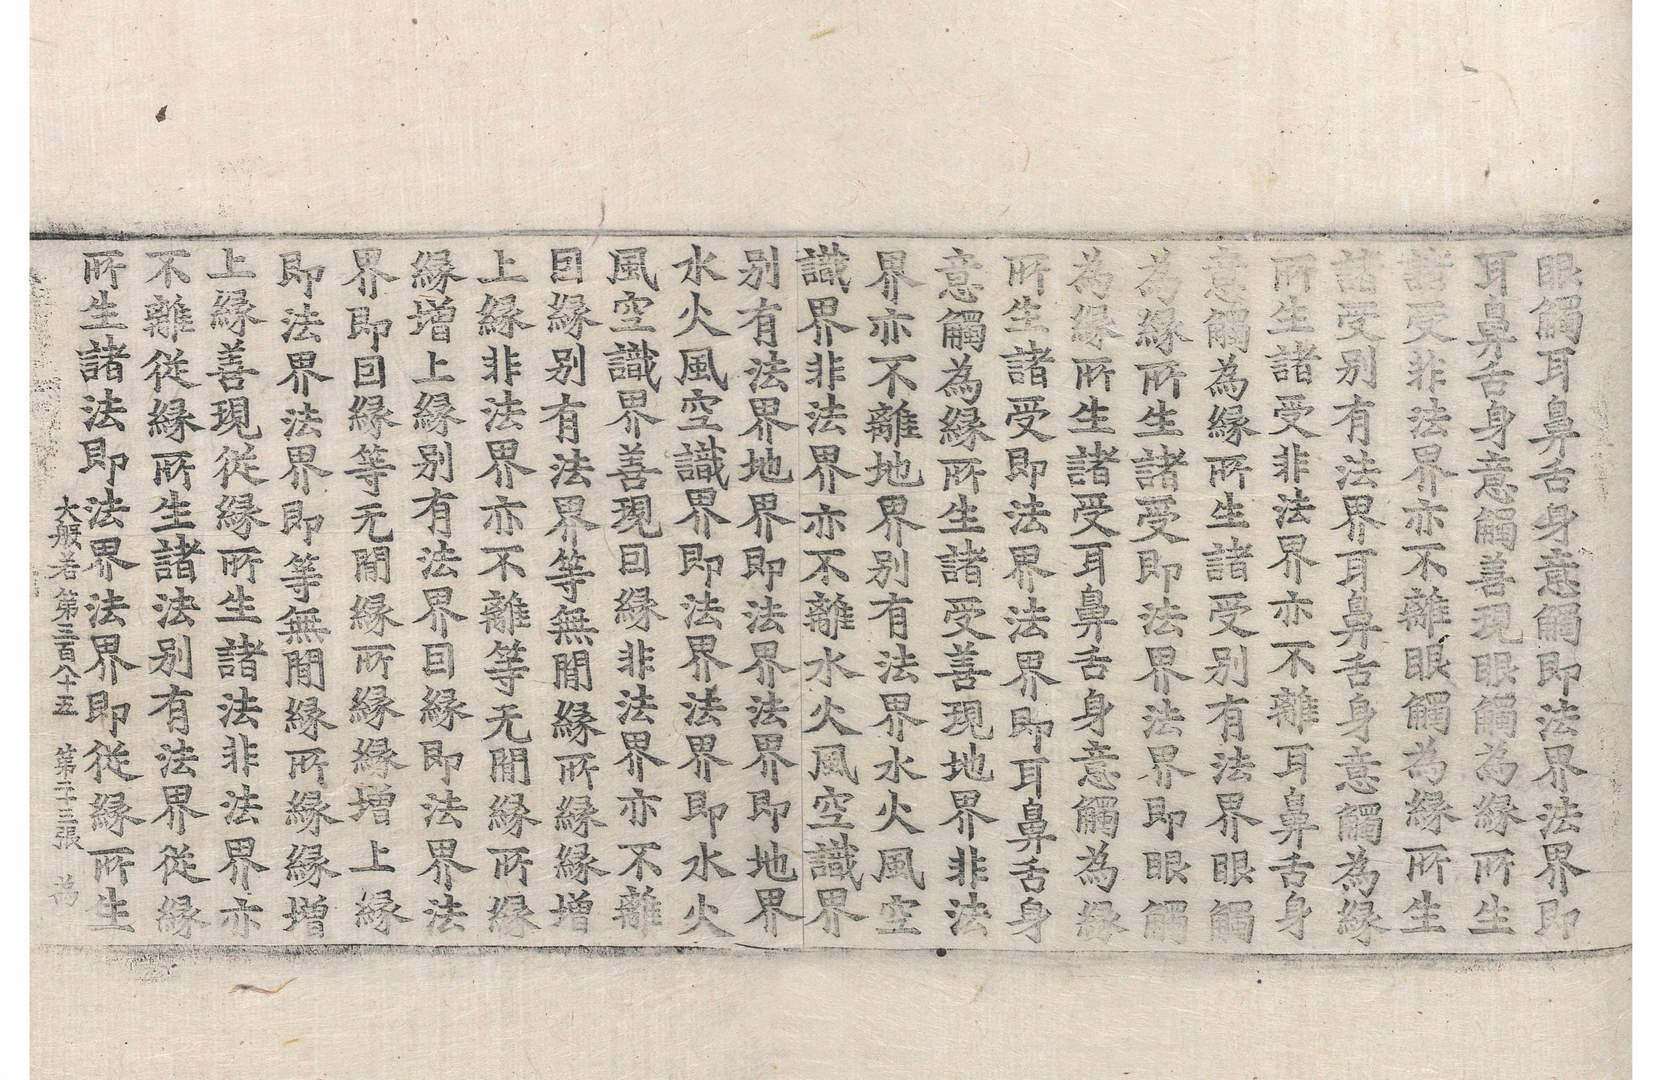 眼觸耳鼻舌身意觸即法界法界即
耳鼻舌身意觸善現眼觸為縁所生
諸受非法界亦不離眼觸為縁所生
諸受别有法界耳鼻舌身意觸為縁
所生諸受非法界亦不離耳鼻舌身
意觸為縁所生諸受别有法界眼觸
為縁所生諸受即法界法界即眼觸
為縁所生諸受耳鼻舌身意觸為縁
所生諸受即法界法界即耳鼻舌身
意觸為縁所生諸受善現地界非法
界亦不離地界别有法界水火風空
識界非法界亦不離水火風空識界
别有法界地界即法界法界即地界
水火風空識界即法界法界即水火
風空識界善現囙縁非法界亦不離
囙縁别有法界等無閒縁所縁縁增
上縁非法界亦不離等无閒縁所縁
縁增上縁别有法界囙縁即法界法
界即囙縁等无閒縁所縁縁增上縁
即法界法界即等無閒縁所縁縁增
上縁善現從縁所生諸法非法界亦
不離從縁所生諸法别有法界從縁
所生諸法即法界法界即從縁所生
大般若第三百八十五 第二十三張 為